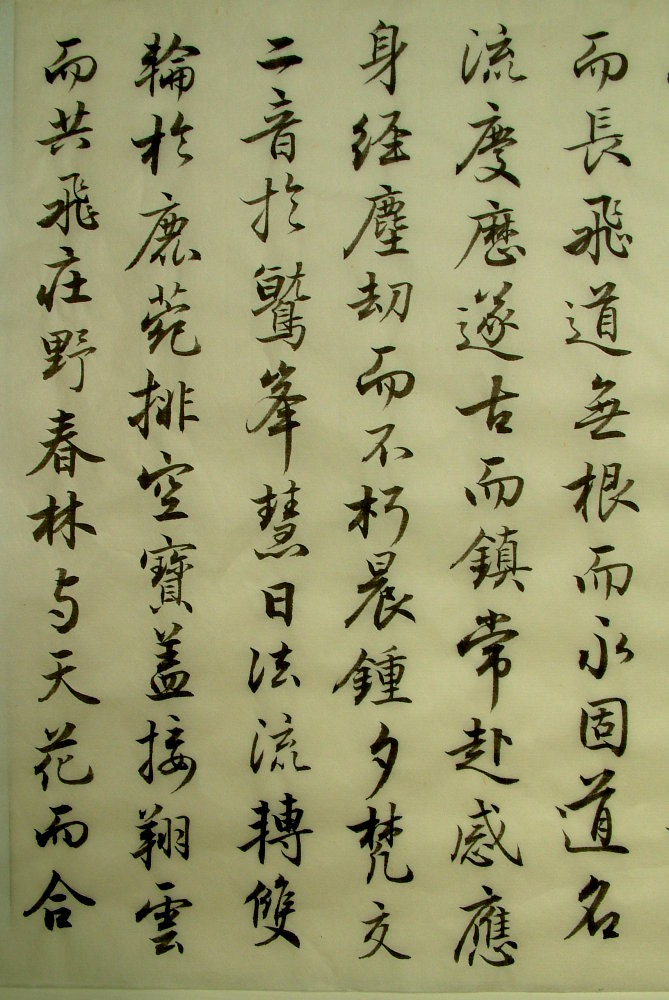 而長飛道無根而永固道名
流慶歷遂古而鎮常赴感應
身經塵劫而不朽晨鍾夕梵交
二音於鷲峯慧日法流轉雙
輪於鹿菀排空寶蓋接翔雲
而共飛庄野春林与天花而合